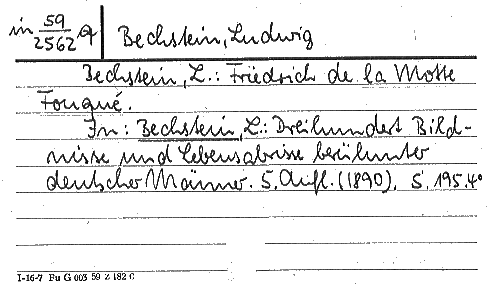 in 59/2562 4° Bechstein, Ludwig
Bechstein, L.: Friedrich de la Motte
Fouqué.
In: Bechstein, L.: Dreihundert Bild-
nisse und Lebensabrisse berühmter
deutscher Männer. 5. Aufl. (1890). S. 195. 4°
I-16-7 Fu G 003 59 Z 182 C